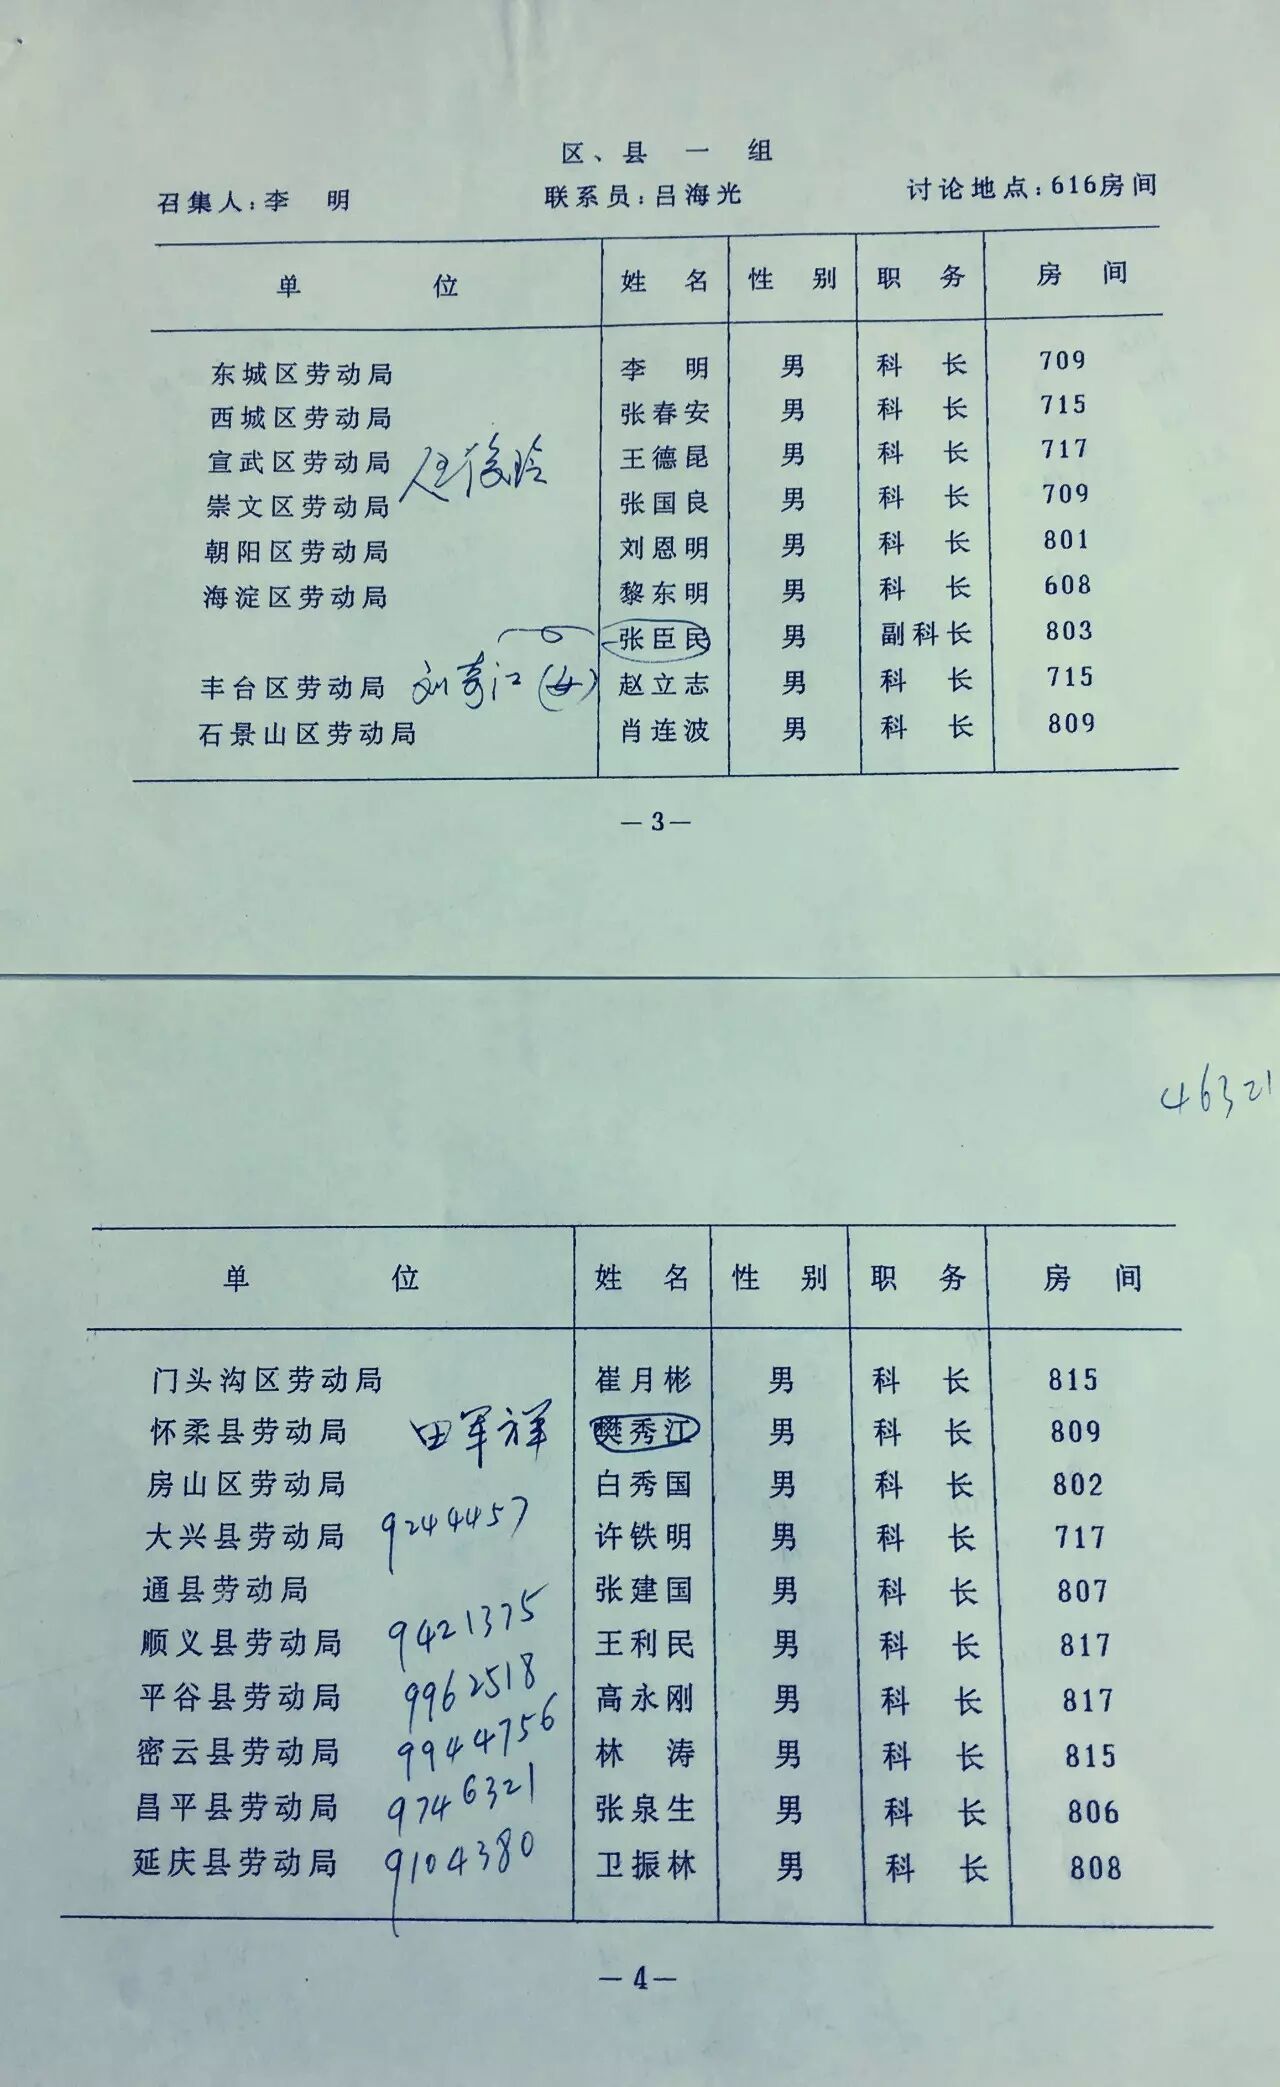 区、县 一 组
召集人:李 明 联系员:吕海光 讨论地点:616房间
单 位 姓 名 性 别 职 务 房 间
东城区劳动局 李 明 男 科 长 709
西城区劳动局 张春安 男 科 长 715
宣武区劳动局 王德昆 男 科 长 717
崇文区劳动局 张国良 男 科 长 709
朝阳区劳动局 刘恩明 男 科 长 801
海淀区劳动局 黎东明 男 科 长 608
张臣民 男 副科长 803
丰台区劳动局 刘 江(女) 赵立志 男 科 长 715
石景山区劳动局 肖连波 男 科 长 809
—3—
46321
单 位 姓 名 性 别 职 务 房 间
门头沟区劳动局 崔月彬 男 科 长 815
怀柔县劳动局 田军祥 樊秀江 男 科 长 809
房山区劳动局 白秀国 男 科 长 802
大兴县劳动局 9244457 许铁明 男 科 长 717
通县劳动局 张建国 男 科 长 807
顺义县劳动局 9421375 王利民 男 科 长 817
平谷县劳动局 9962518 高永刚 男 科 长 817
密云县劳动局 9944756 林 涛 男 科 长 815
昌平县劳动局 9746321 张泉生 男 科 长 806
延庆县劳动局 9104380 卫振林 男 科 长 808
—4—